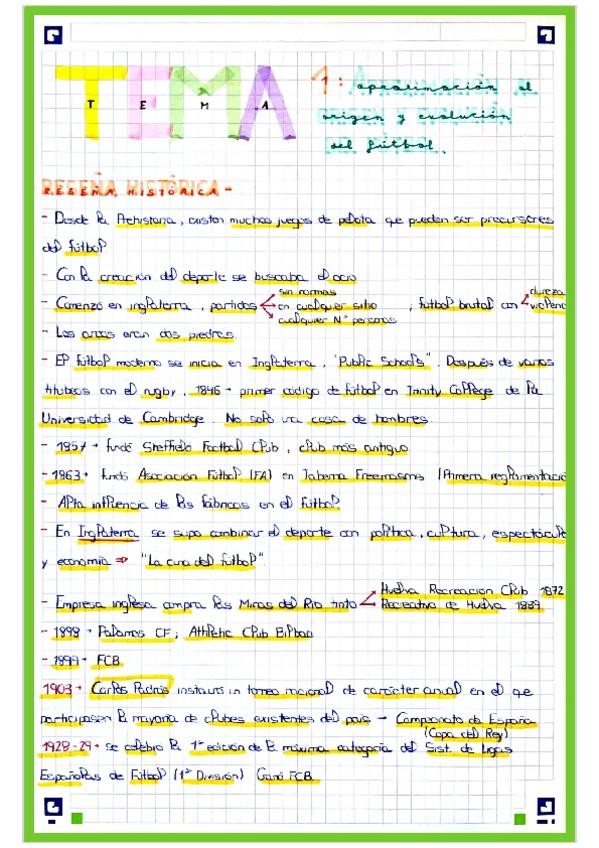 TEMA 1: Aproximación al
T E M A
origen y evolución
del fútbol.
RESEÑA HISTÓRICA -
- Desde la Prehistoria, existen muchos juegos de pelota que pueden ser precursores
del fútbol
- Con la creación del deporte se buscaba el ocio
- Comenzó en inglaterra, partidos sin normas
en cualquier sitio, futbol brutal con dureza
cualquier Nº personas violenc
- Los arcos eran dos piedras
- El futbol moderno se inicia en Inglaterra, "Public Schools". Después de varios
titubeos con el rugby, 1846 → primer código de fútbol en Trinity College de la
Universidad de Cambridge. No solo una cosa de hombres
- 1857 → fundó Sheffield Football Club, club más antiguo
- 1863 → fundó Asociación Fútbol (FA) en Taberna Freemasons (Primera reglamentació
- Alta influencia de las fábricas en el fútbol
- En Inglaterra se supo combinar el deporte con política, cultura, espectácul
y economía ⇒ "La cuna del futbol"
- Empresa inglesa compra las Minas del Rio tinto Huelva Recreación Club 1872
Recreativo de Huelva 1889
- 1898 → Palamós CF, Athletic Club Bilbao
- 1899 → FCB
1903 → Carlos Padrós instauró un torneo nacional de carácter anual en el que
participasen la mayoria de clubes existentes del país - Campeonato de España
(Copa del Rey)
1928-29 → se celebro la 1ª edición de la máxima categoría del Sist. de Ligas
Españolas de Fútbol (1ª División) Ganó FCB